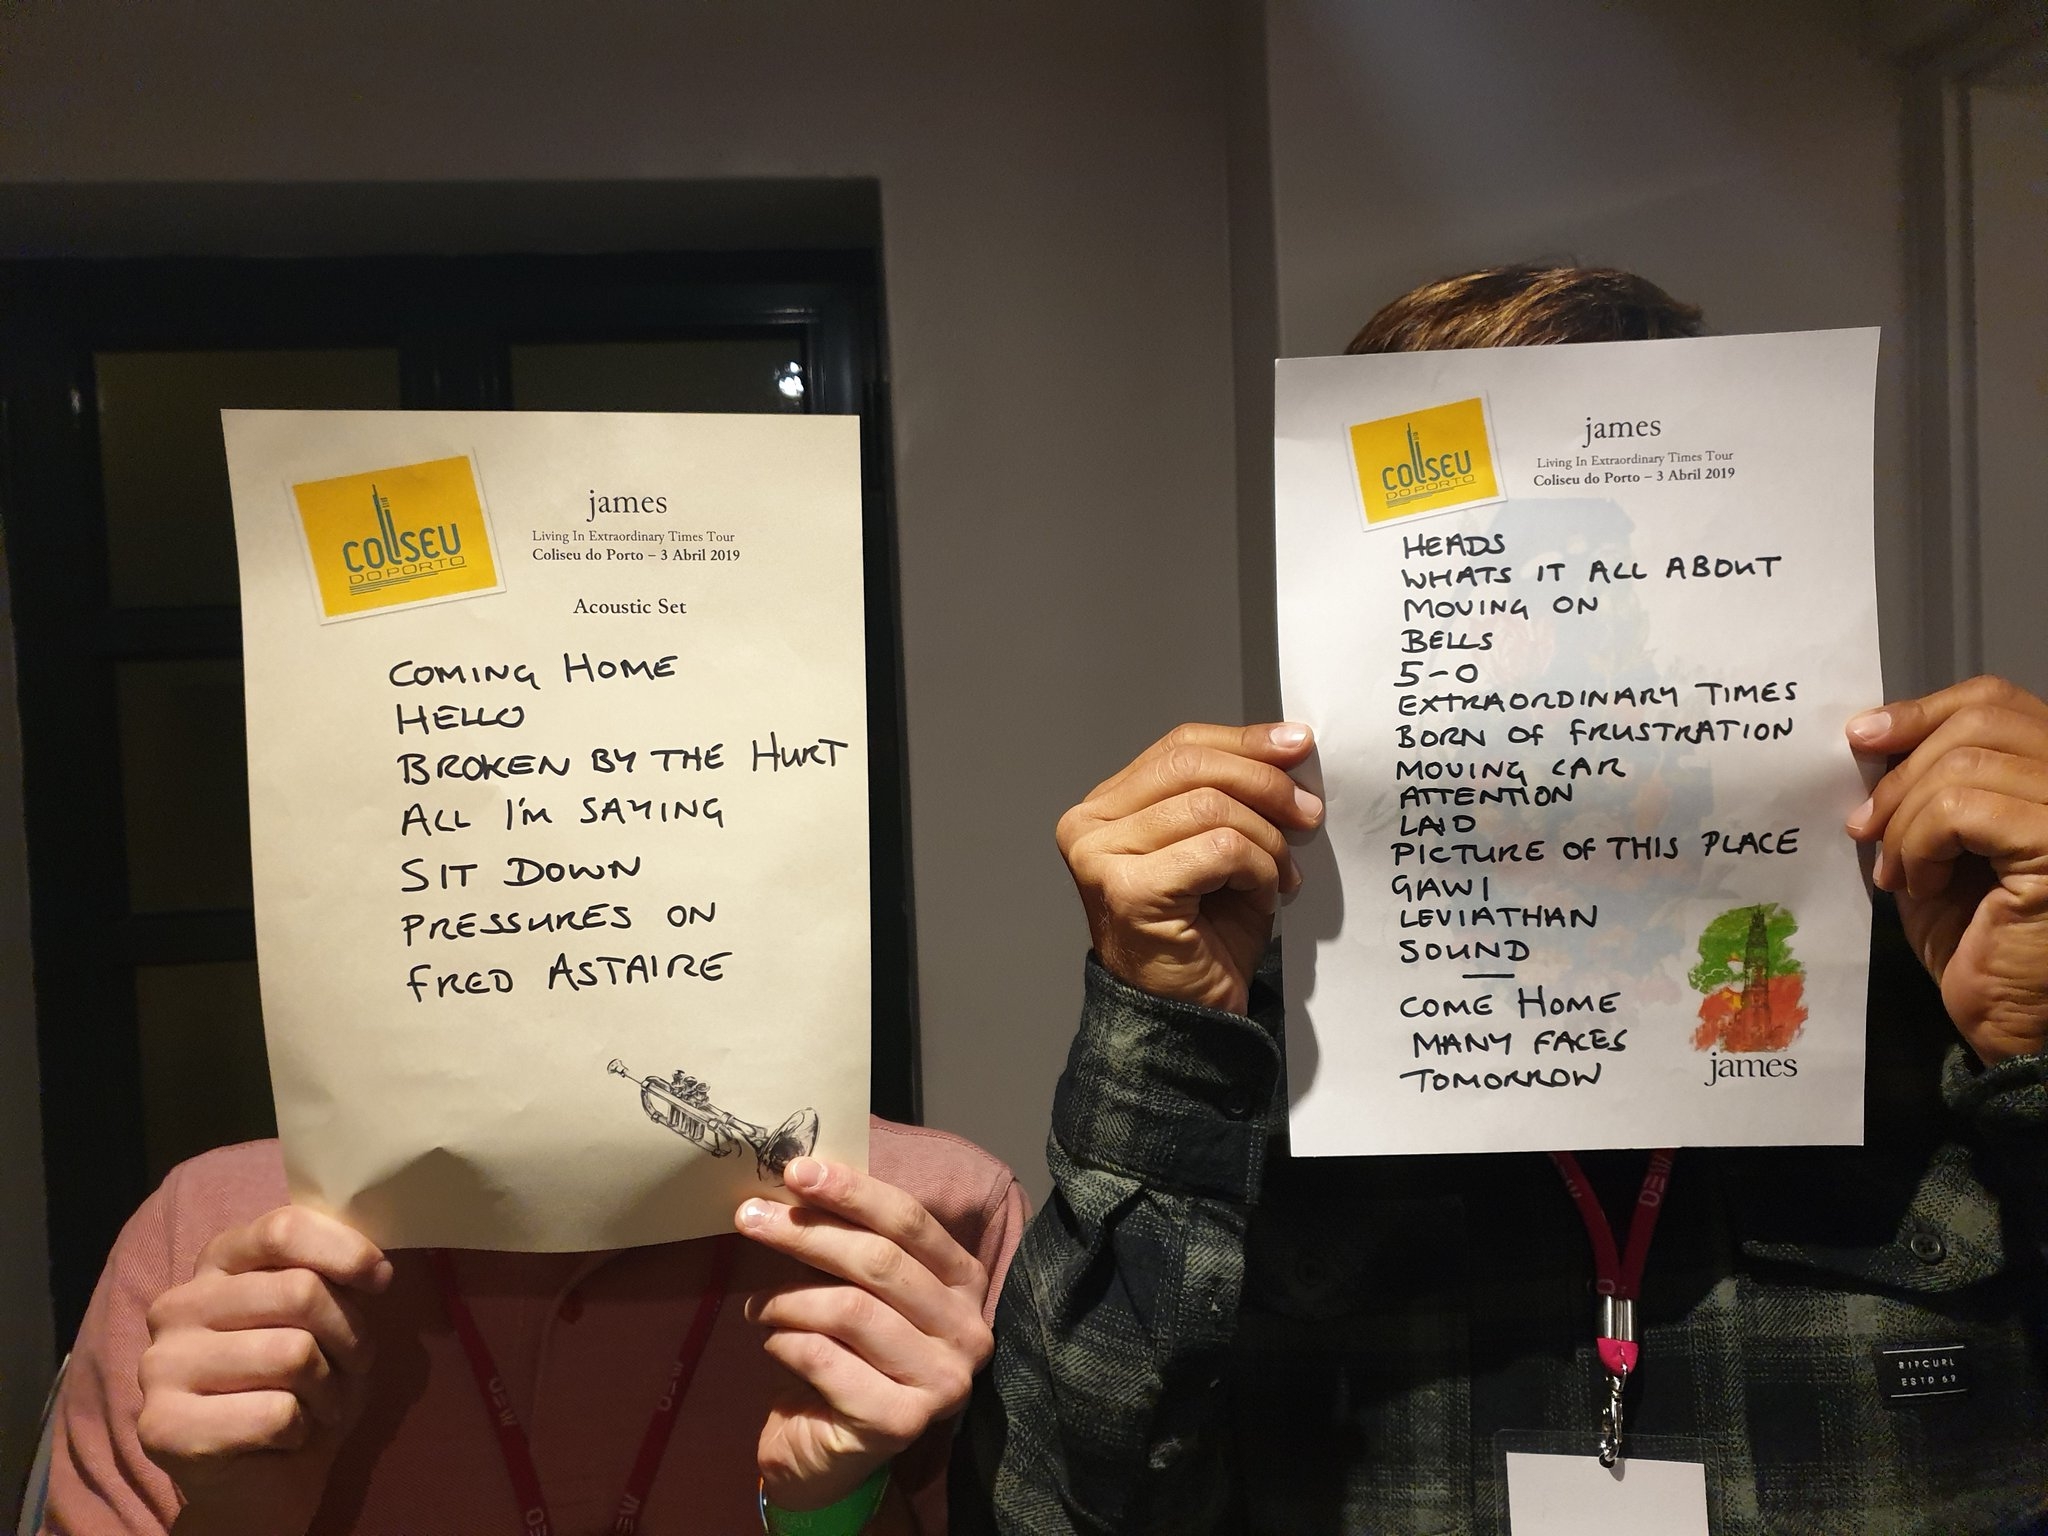 COLISEU
DO PORTO
james
Living In Extraordinary Times Tour
Coliseu do Porto – 3 Abril 2019
Acoustic Set
COMING HOME
HELLO
BROKEN BY THE HURT
ALL I'M SAYING
SIT DOWN
PRESSURES ON
FRED ASTAIRE
COLISEU
DO PORTO
james
Living In Extraordinary Times Tour
Coliseu do Porto – 3 Abril 2019
HEADS
WHATS IT ALL ABOUT
MOVING ON
BELLS
5-0
EXTRAORDINARY TIMES
BORN OF FRUSTRATION
MOVING CAR
ATTENTION
LAID
PICTURE OF THIS PLACE
GAWI
LEVIATHAN
SOUND
COME HOME
MANY FACES
TOMORROW
james
RIPCURL
ESTD 69